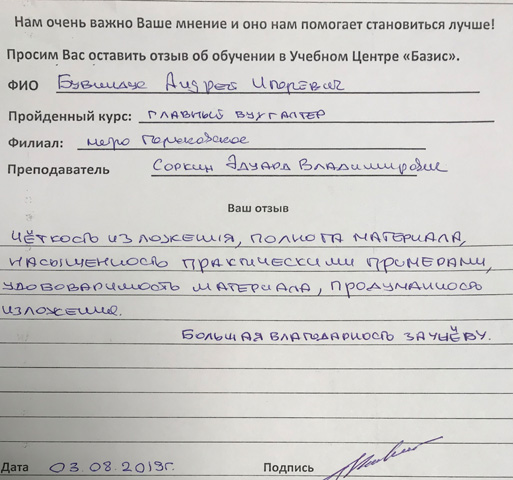 Нам очень важно Ваше мнение и оно нам помогает становиться лучше!
Просим Вас оставить отзыв об обучении в Учебном Центре «Базис».
ФИО Андрей Игоревич
Пройденный курс: ГЛАВНЫЙ БУХГАЛТЕР
Филиал: метро Горьковское
Преподаватель Соркин Эдуард Владимирович
Ваш отзыв
ЧЁТКОСТЬ ИЗЛОЖЕНИЯ, ПОЛНОТА МАТЕРИАЛА,
НАСЫЩЕННОСТЬ ПРАКТИЧЕСКИМИ ПРИМЕРАМИ,
УДОБОВАРИМОСТЬ МАТЕРИАЛА, ПРОДУМАННОСТЬ
ИЗЛОЖЕНИЯ.
БОЛЬШАЯ БЛАГОДАРНОСТЬ ЗА УЧЁБУ.
Дата 03.08.2019г. Подпись